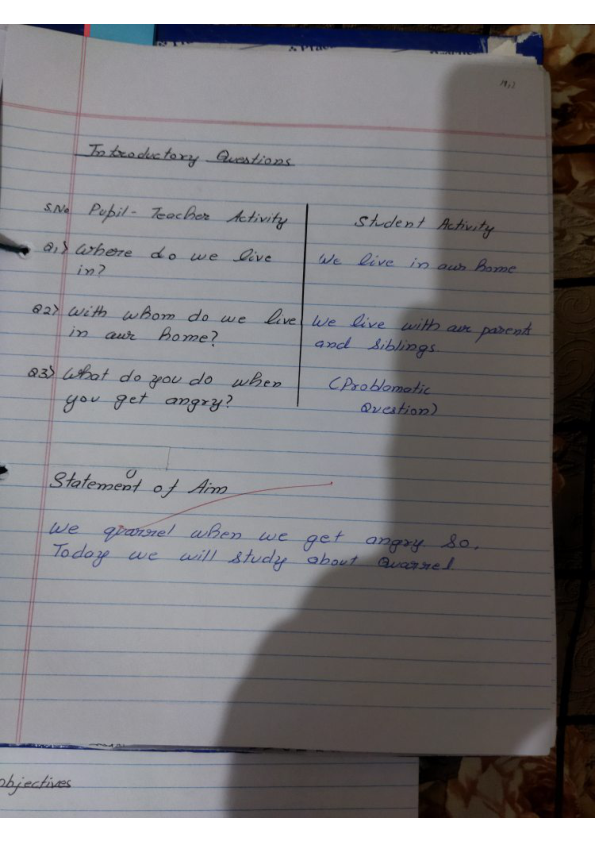 Introductory Questions
S.No Pupil-Teacher Activity
Student Activity
Q1) Where do we live
in?
We live in our home
Q2) With whom do we live
in our home?
We live with our parents
and siblings.
Q3) What do you do when
you get angry?
(Problomatic
Question)
Statement of Aim
We quarrel when we get angry so,
Today we will study about Quarrel.
objectives